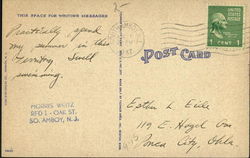 THIS SPACE FOR WRITING MESSAGES
Practically spend
my summer in this
Territory. Swell
swimming.
HORRIS WEITZ
RFD 1 - OAK ST.
SO. AMBOY, N.J.
POST CARD
UNITED STATES
POSTAGE
1 CENT 1
Esther L.
119 E.
Ponca City, Okla.